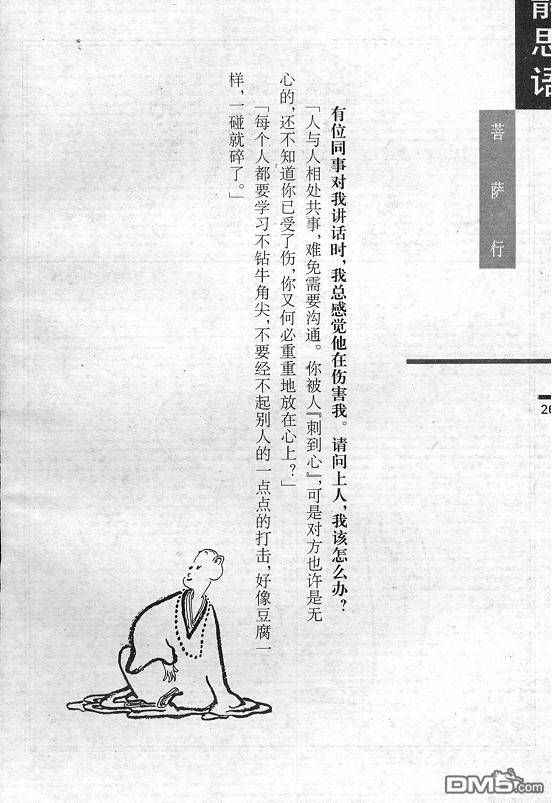 静思语
菩萨行
26
有位同事对我讲话时，我总感觉他在伤害我。请问上人，我该怎么办？
「人与人相处共事，难免需要沟通。你被人『刺到心』，可是对方也许是无
心的，还不知道你已受了伤，你又何必重重地放在心上？」
「每个人都要学习不钻牛角尖，不要经不起别人的一点点的打击，好像豆腐一
样，一碰就碎了。」
DM5.com